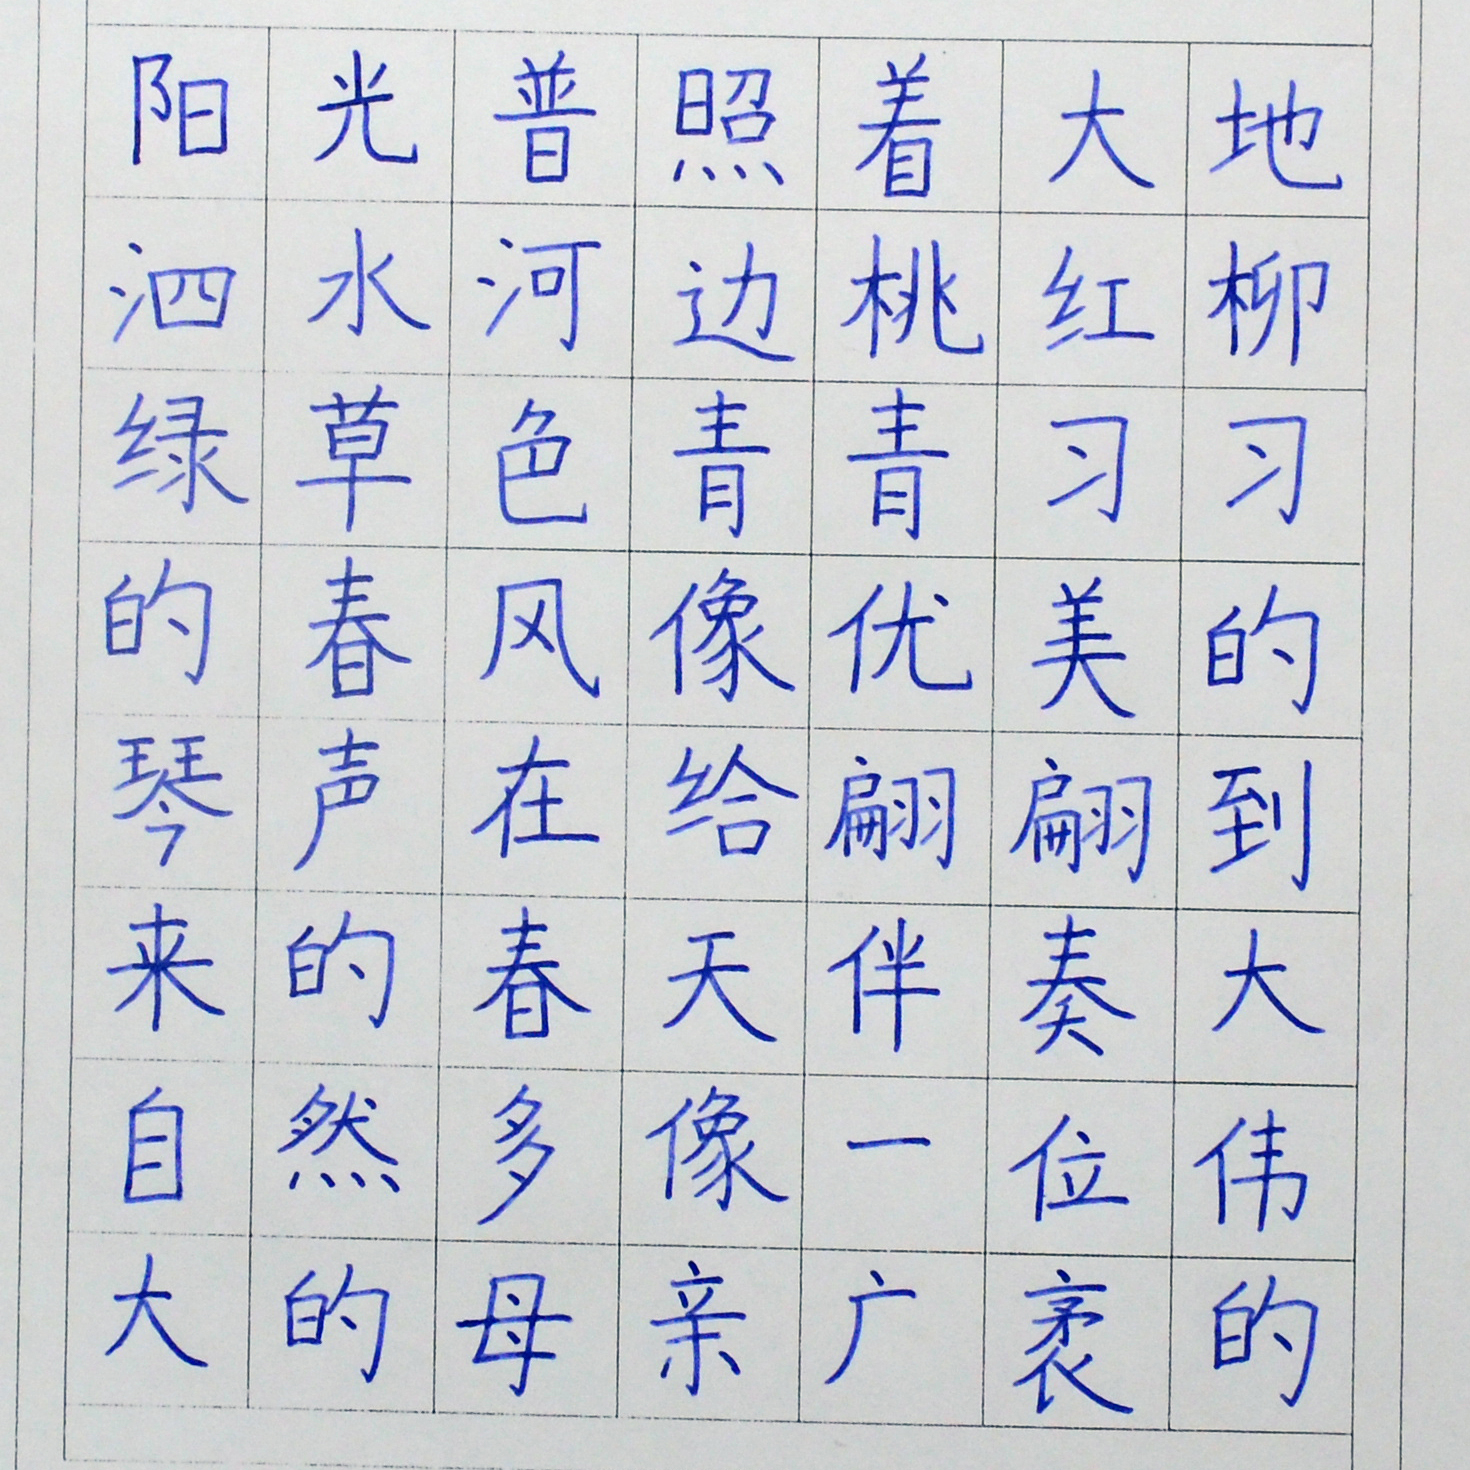 阳光普照着大地
泗水河边桃红柳
绿草色青青习习
的春风像优美的
琴声在给翩翩到
来的春天伴奏大
自然多像一位伟
大的母亲广袤的